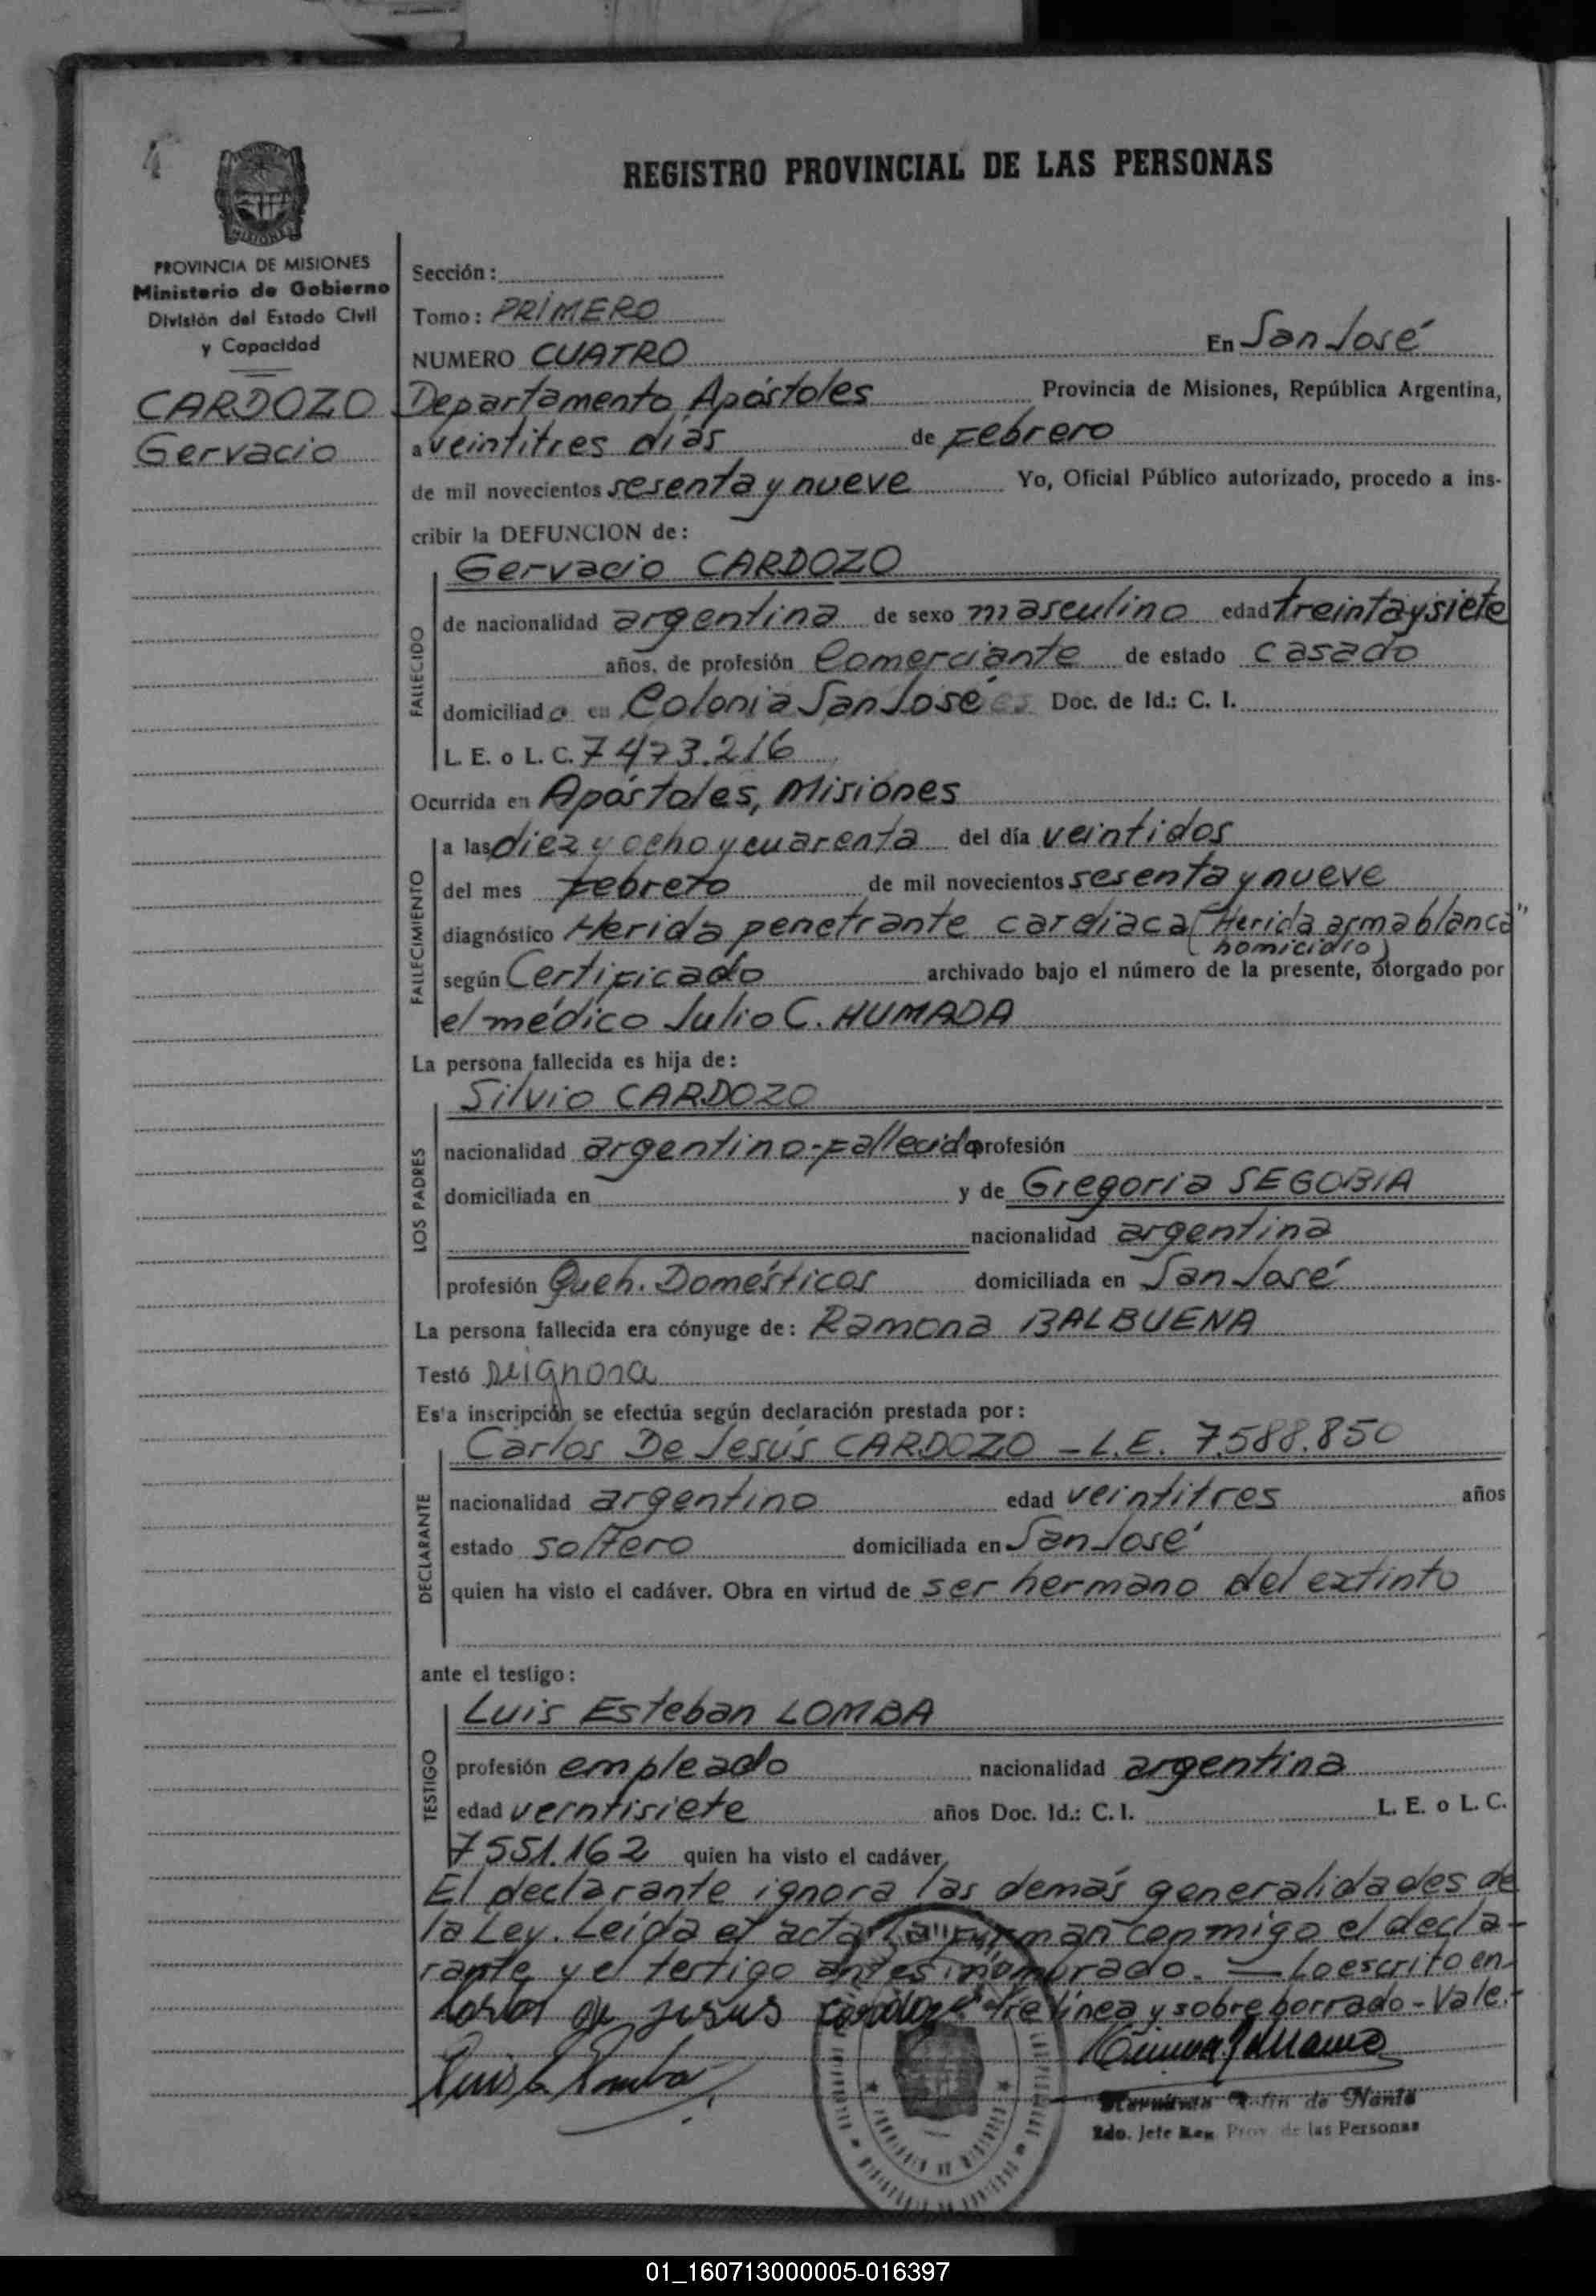 4
REGISTRO PROVINCIAL DE LAS PERSONAS
MISIONES
PROVINCIA DE MISIONES
Ministerio de Gobierno
División del Estado Civil
y Capacidad
CARDOZO
Gervacio
Sección:
Tomo: PRIMERO
NUMERO CUATRO En San José
Departamento Apóstoles Provincia de Misiones, República Argentina,
a veintitres días de Febrero
de mil novecientos sesenta y nueve Yo, Oficial Público autorizado, procedo a ins-
cribir la DEFUNCION de:
Gervacio CARDOZO
FALLECIDO
de nacionalidad argentina de sexo masculino edad treinta y siete
años, de profesión Comerciante de estado casado
domiciliado en Colonia San José Doc. de Id.: C. I.
L. E. o L. C. 7473.216
Ocurrida en Apóstoles, Misiones
FALLECIMIENTO
a las diez y ocho y cuarenta del día veintidos
del mes Febrero de mil novecientos sesenta y nueve
diagnóstico Herida penetrante cardíaca ("Herida arma blanca"
homicidio)
según Certificado archivado bajo el número de la presente, otorgado por
el médico Julio C. HUMADA
La persona fallecida es hija de:
Silvio CARDOZO
LOS PADRES
nacionalidad argentino-fallecido profesión
domiciliada en y de Gregoria SEGOBIA
nacionalidad argentina
profesión Queh. Domésticos domiciliada en San José
La persona fallecida era cónyuge de: Ramona BALBUENA
Testó se ignora
Esta inscripción se efectúa según declaración prestada por:
Carlos De Jesús CARDOZO - L.E. 7.588.850
DECLARANTE
nacionalidad argentino edad veintitres años
estado soltero domiciliada en San José
quien ha visto el cadáver. Obra en virtud de ser hermano del extinto
ante el testigo:
Luis Esteban LOMBA
TESTIGO
profesión empleado nacionalidad argentina
edad veintisiete años Doc. Id.: C. I. L. E. o L. C.
7551.162 quien ha visto el cadáver,
El declarante ignora las demás generalidades de
la Ley. Leída el acta "la" firman conmigo el decla-
rante y el testigo antes nombrado. — Lo escrito en-
Carlos de jesus cardozo tre línea y sobre borrado - Vale.-
Luis E Lomba
de Nanta
2do. Jefe Reg. Prov. de las Personas
01_160713000005-016397